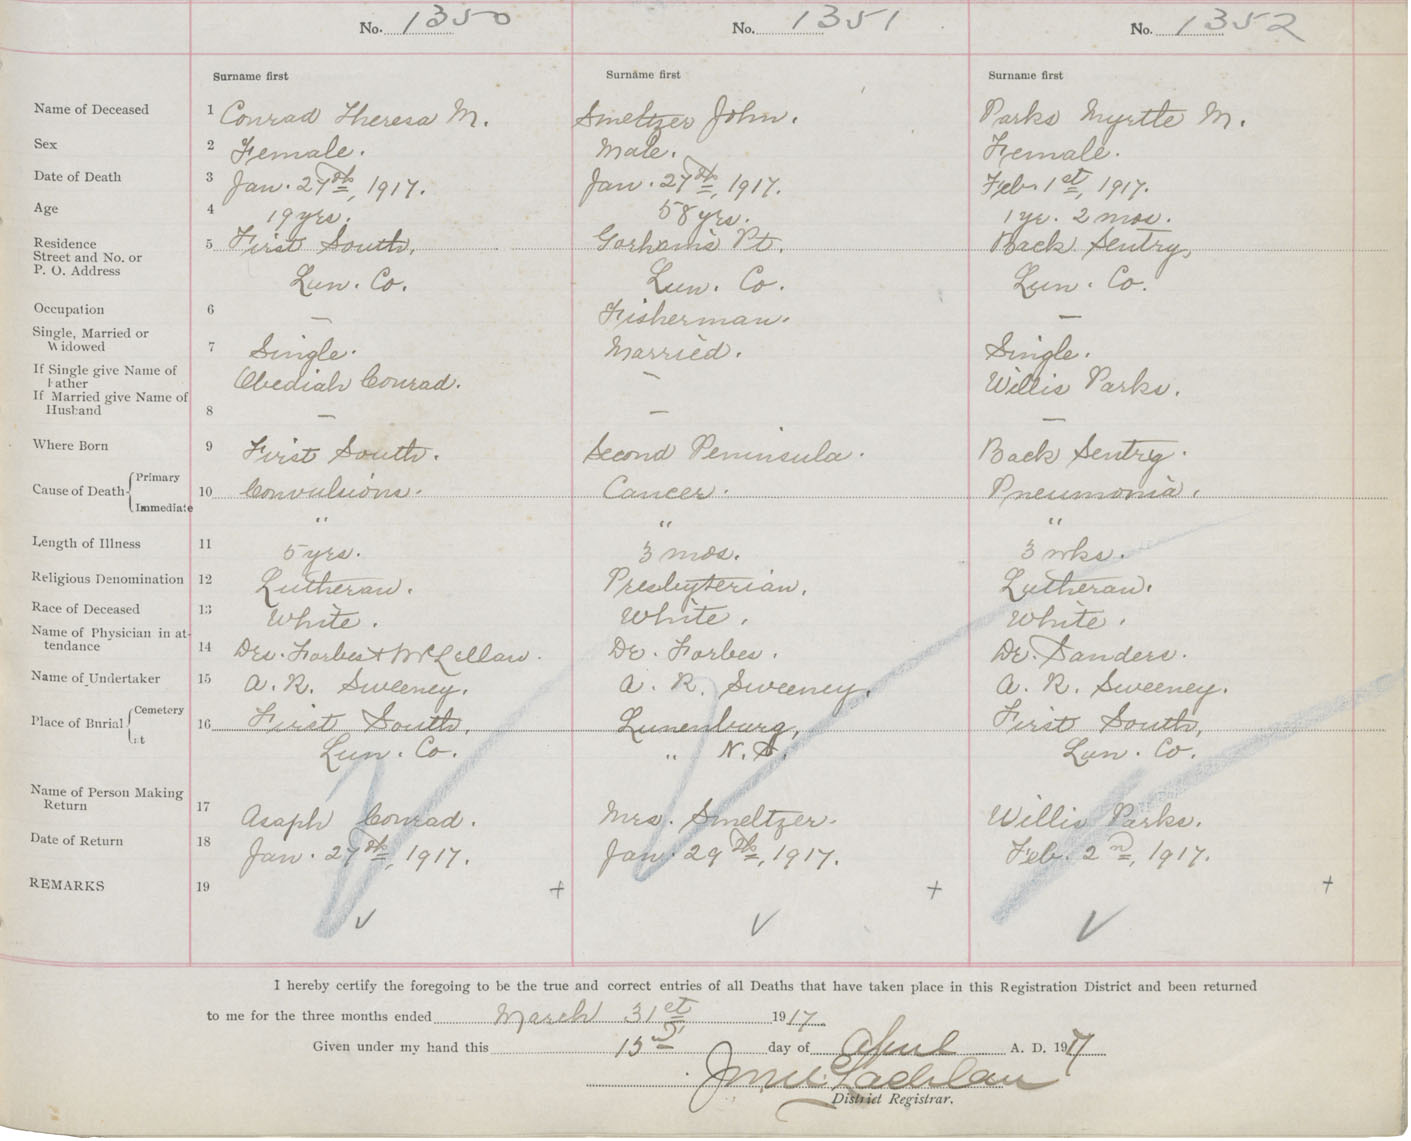 No. 1350 No. 1351 No. 1352
Surname first Surname first Surname first
Name of Deceased 1 Conrad Theresa M. Smeltzer John. Parks Myrtle M.
Sex 2 Female. Male. Female.
Date of Death 3 Jan. 27th, 1917. Jan. 27th, 1917. Feb. 1st, 1917.
Age 4 19 yrs. 58 yrs. 1 yr. 2 mos.
Residence
Street and No. or
P. O. Address 5 First South, Gorham's Pt. Back Sentry,
Lun. Co. Lun. Co. Lun. Co.
Occupation 6 — Fisherman. —
Single, Married or
Widowed 7 Single. Married. Single.
If Single give Name of
Father Obediah Conrad. — Willis Parks.
If Married give Name of
Husband 8 — — —
Where Born 9 First South. Second Peninsula. Back Sentry.
Cause of Death Primary
10 Convulsions. Cancer. Pneumonia.
Immediate " " "
Length of Illness 11 5 yrs. 3 mos. 3 wks.
Religious Denomination 12 Lutheran. Presbyterian. Lutheran.
Race of Deceased 13 White. White. White.
Name of Physician in at-
tendance 14 Drs. Forbes & McLellan. Dr. Forbes. Dr. Sanders.
Name of Undertaker 15 A. R. Sweeney. A. R. Sweeney. A. R. Sweeney.
Place of Burial Cemetery
16 First South, Lunenburg, First South,
at Lun. Co. " N.S. Lun. Co.
Name of Person Making
Return 17 Asaph Conrad. Mrs. Smeltzer. Willis Parks.
Date of Return 18 Jan. 27th, 1917. Jan. 29th, 1917. Feb. 2nd, 1917.
REMARKS 19 + + +
I hereby certify the foregoing to be the true and correct entries of all Deaths that have taken place in this Registration District and been returned
to me for the three months ended March 31st 1917.
Given under my hand this day of April A. D. 1917
District Registrar.